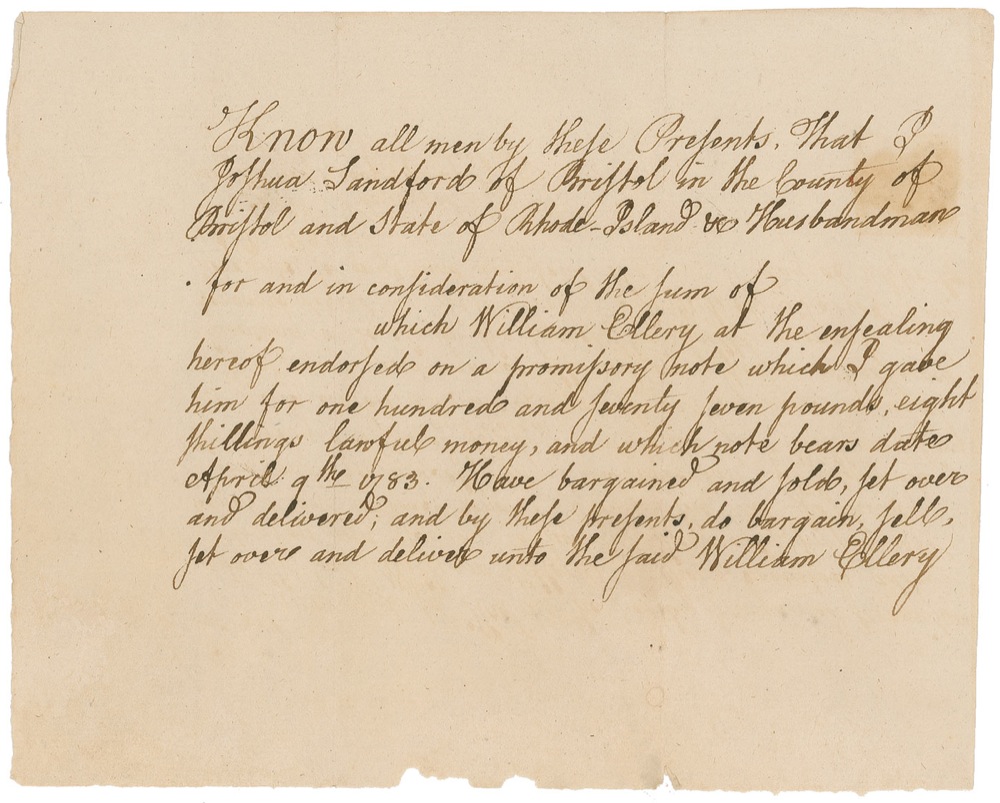 Know all men by these Presents, That I
Joshua Sandford of Bristol in the County of
Bristol and State of Rhode-Island &c Husbandman
for and in consideration of the sum of
which William Ellery at the ensealing
hereof endorsed on a promissory note which I gave
him for one hundred and seventy seven pounds, eight
shillings lawful money, and which note bears date
April 9th 1783. Have bargained and sold, set over
and delivered, and by these presents, do bargain, sell,
set over and deliver unto the said William Ellery